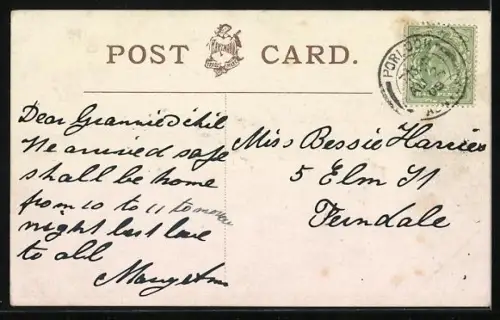 POST CARD.
Dear Grannies chil
We arrived safe
shall be home
from 10 to 11 tomorrow
night best love
to all
Mary Ann
Miss Bessie Harries
5 Elm St
Ferndale